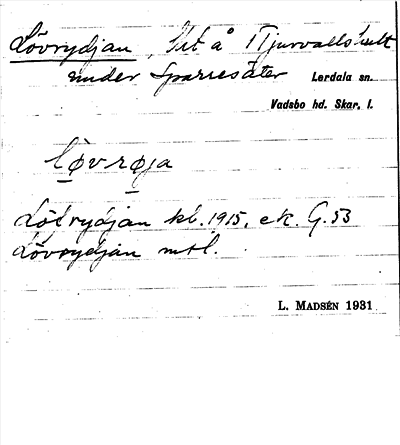 Lövrydjan, Lht å Tjurvallshult
under Sparresäter Lerdala sn.
Vadsbo hd. Skar. l.
lø̱vrø̱ja
Löfrydjan kb. 1915, ek. G. 53
Lövrydjan mtl.
L. MADSÉN 1931